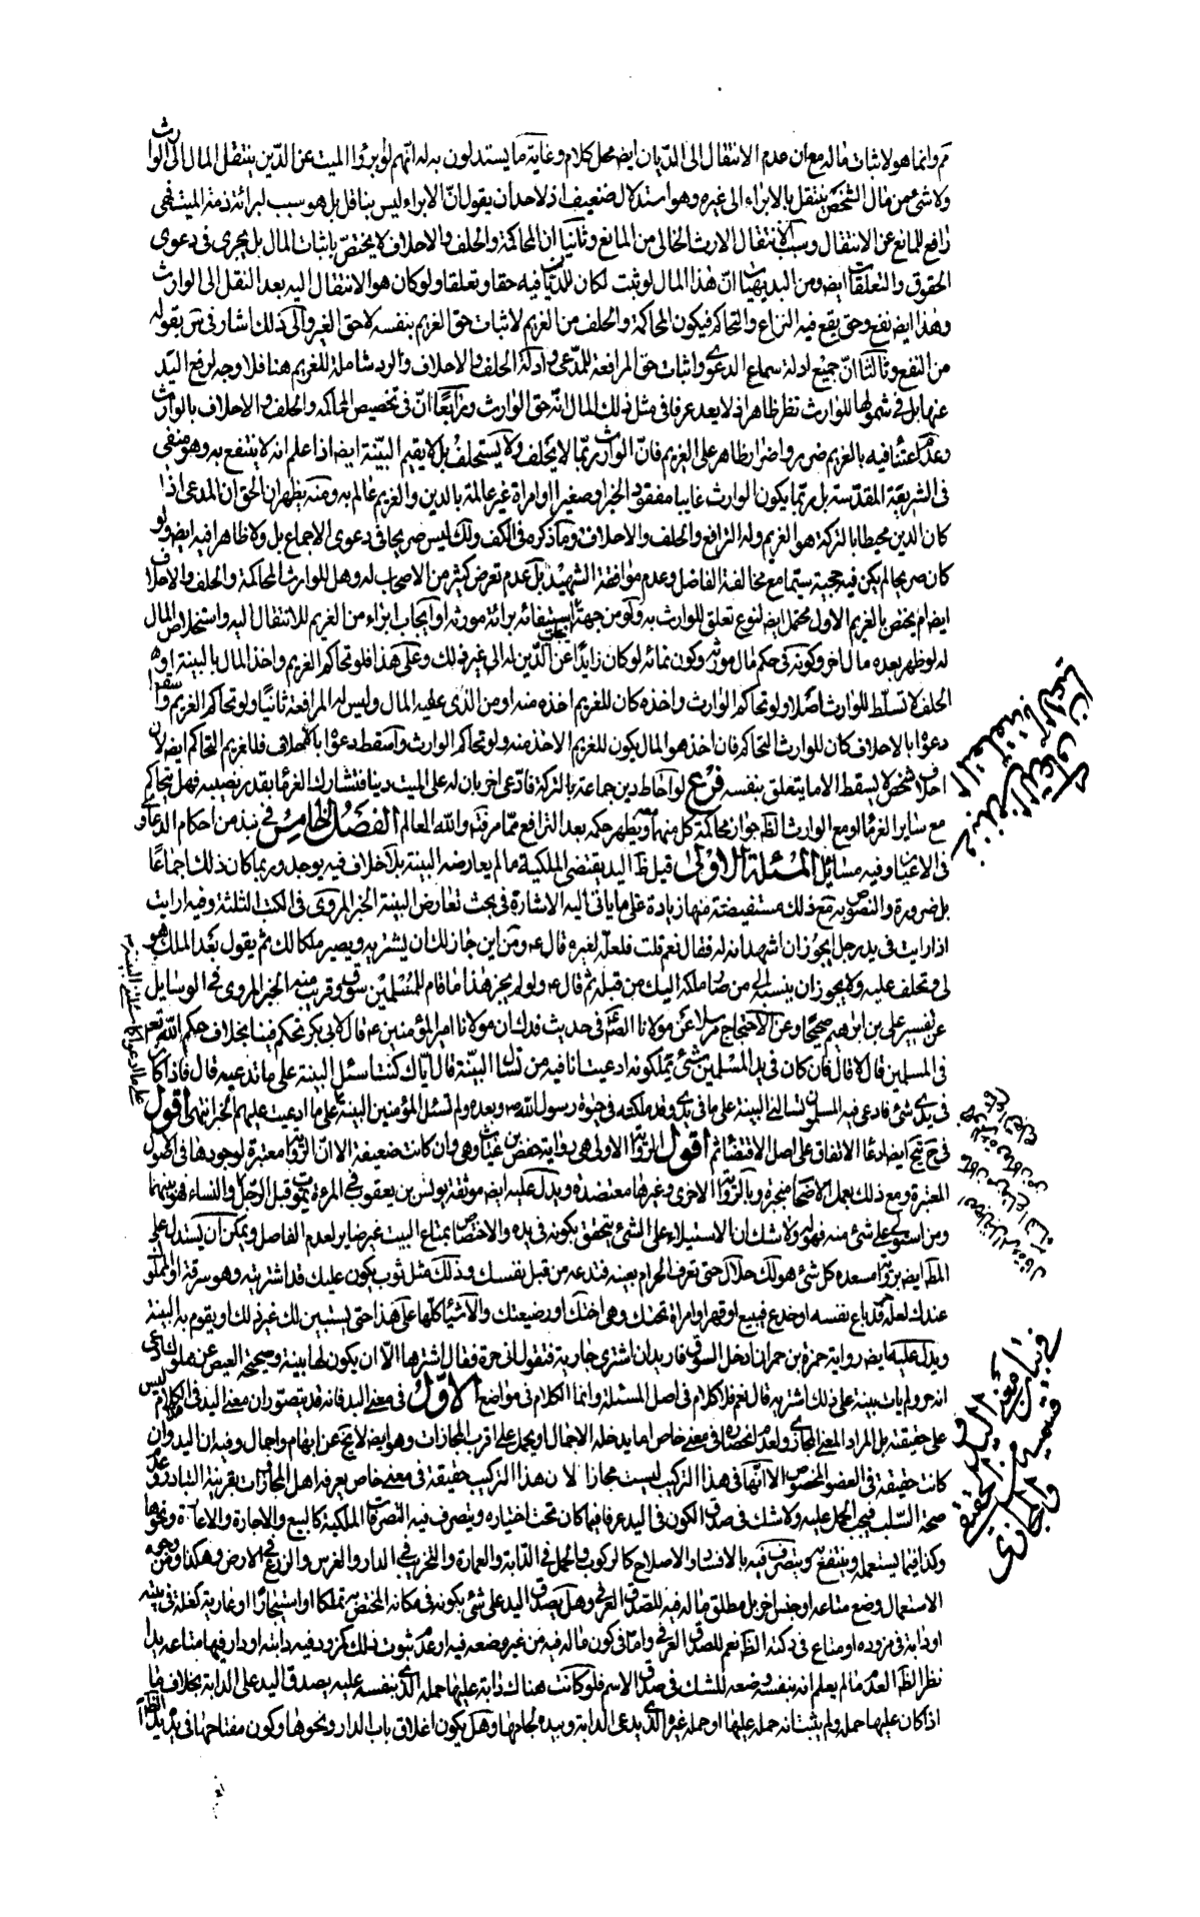 مر وانما هو لاثبات ماله مع ان عدم الانتقال الى الديان ايضا محل كلام وغاية ما يستدلون به له انهم لو برؤا الميت عن الدين ينتقل المال الى الوارث
ولا شئ من مال الشخص ينتقل بالابراء الى غيره وهو استدلال ضعيف اذ لاحد ان يقول ان الابراء ليس بناقل بل هو سبب لبرائة ذمة الميت فهى
رافع للمانع عن الانتقال وسبب الانتقال الارث الخالى من المانع وثانيا ان المحاكمة والحلف والاحلاف لا يختص باثبات المال بل يجرى فى دعوى
الحقوق والتعلقات ايضا ومن البديهيات ان هذا المال لو ثبت لكان للديان فيه حقا وتعلقا ولو كان هو الانتقال اليه بعد النقل الى الوارث
وهذا ايضا نفع وحق يقع فيه النزاع والتحاكم فيكون المحاكمة والحلف من الغريم لاثبات حق الغريم بنفسه لا حق الغير والى ذلك اشار فى س بقوله
من النفع وثالثا ان جميع ادلة سماع الدعوى واثبات حق المرافعة للمدعى وادلة الحلف والاحلاف والرد شاملة للغريم هنا فلا وجه لرفع اليد
عنها بل فى شمولها للوارث نظر ظاهر اذ لا يعد عرفا فى مثل ذلك المال انه حق الوارث ورابعا ان فى تخصيص المحاكمة والحلف والاحلاف بالوارث
وعدم اعتنائه بالغريم ضرر واضرار ظاهر على الغريم فان الوارث ربما لا يحلف ولا يستحلف بل لا يقيم البينة ايضا اذا علم انه لا ينتفع به وهو منفى
فى الشريعة المقدسة بل ربما يكون الوارث غايبا مفقود الخبر او صغيرا او امراة غير عالمة بالدين والغريم عالم به ومنه يظهر ان الحق ان المدعى اذا
كان الدين محيطا بالتركة هو الغريم وله الترافع والحلف والاحلاف وما ذكره فى الكف ولك ليس صريحا فى دعوى الاجماع بل ولا ظاهرا فيه ايضا ولو
كان صريحا لم يكن فيه حجية سيما مع مخالفة الفاضل وعدم موافقة الشهيد بل عدم تعرض كثير من الاصحاب له وهل للوارث المحاكمة والحلف والاحلاف
ايضا ام يختص بالغريم الاول محتمل ايضا لنوع تعلق للوارث به ولو من جهة استيفائه برائة مورثه او ايجاب ابراء من الغريم للانتقال اليه واستخلاص المال
له لو ظهر بعده مال اخر وكونه فى حكم مال مورثه وكون نمائه لو كان زايدا عن الدين له الى غير ذلك وعلى هذا فلو تحاكم الغريم واخذ المال بالبينة او
الحلف لا تسلط للوارث اصلا ولو تحاكم الوارث واخذه كان للغريم اخذه منه او من الذى عليه المال وليس له المرافعة ثانيا ولو تحاكم الغريم واسقط
دعواه بالاحلاف كان للوارث التحاكم فان اخذ هو المال يكون للغريم الاخذ منه ولو تحاكم الوارث واسقط دعواه بالاحلاف فللغريم التحاكم ايضا لان
احلاف شخص لا يسقط الا ما يتعلق بنفسه فرع لو احاط دين جماعة بالتركة فادعى اخر بان له على الميت دينا فتشارك الغرما بقدر نصيبه فهل يتحاكم
مع ساير الغرما او مع الوارث الظ جواز محاكمة كل منهما ويظهر حكمه بعد الترافع مما مر فته والله العالم الفصل الخامس فى نبذ من احكام الدعاوى
فى الاعيان وفيه مسائل المسئلة الاولى قيل ظ اليد يقتضى الملكية ما لم يعارضه البينة بلا خلاف فيه يوجد وربما كان ذلك اجماعا
بل ضرورة والنصوص به مع ذلك مستفيضة منها زيادة على ما ياتى اليه الاشارة فى بحث تعارض البينة الخبر المروى فى الكتب الثلثة وفيه ارايت
اذا رايت فى يد رجل ايجوز ان اشهد انه له فقال نعم قلت فلعله لغيره قال ع ومن اين جاز لك ان يشتريه ويصير ملكا لك ثم يقول بعد الملك هو
لى وتحلف عليه ولا يجوز ان ينسبه الى من صار ملكه اليك من قبله ثم قال ع ولو لم يجز هذا ما قام للمسلمين سوق وقريب منه الخبر المروى فى الوسايل
عن تفسير على بن ابراهيم صحيحا وعن الاحتجاج مرسلا عن مولانا الصادق فى حديث فدك ان مولانا امير المؤمنين ع قال لابى بكر تحكم فينا بخلاف حكم الله تعم
فى المسلمين قال لا قال فان كان فى يد المسلمين شئ يملكونه ادعيت انا فيه من تسئل البينة قال اياك كنت اسئل البينة على ما تدعيه قال فاذا كان
فى يدى شئ فادعى فيه المسلمون تسالنى البينة على ما فى يدى وقد ملكته فى حيوة رسول الله ص وبعده ولم تسئل المؤمنين البينة على ما ادعيت عليهم الخبر انتهى اقول
فى ح تج ايضا ادعا الاتفاق على اصل الاقتضاء ثم اقول الرواية الاولى هى رواية حفص بن غياث وهى وان كانت ضعيفة الا ان الرواية معتبرة لوجودها فى الاصول
المعتبرة ومع ذلك بعمل الاصحاب منجبرة وبالروايات الاخرى وغيرها معتضدة ويدل عليه ايضا موثقة يونس بن يعقوب فى المرءة تموت قبل الرجل والنساء فهو بينهما
ومن استولى على شئ منه فهو له ولا شك ان الاستيلاء على الشئ يتحقق بكونه فى يده والاختصاص بمتاع البيت غير ضاير لعدم الفاصل ويمكن ان يستدل على
المط ايضا برواية مسعدة كل شئ هو لك حلال حتى تعرف الحرام بعينه فتدعه من قبل نفسك وذلك مثل ثوب يكون عليك قد اشتريته وهو سرقة او المملوك
عندك لعله قد باع نفسه او خدع فبيع او قهر او امراة تحتك وهى اختك او رضيعتك والاشياء كلها على هذا حتى يستبين لك غير ذلك او يقوم به البينة
ويدل عليه ايضا رواية حمزة بن حمران ادخل السوق فاريد ان اشترى جارية فتقول انى حرة فقال اشترها الا ان يكون لها بينة وصحيحة العيص عن مملوك ادعى
انه حر ولم يات ببينة على ذلك اشتريه قال نعم فلا كلام فى اصل المسئلة وانما الكلام فى مواضع الاول فى معنى اليد فانه قد يتصور ان معنى اليد فى الكلام ليس
على حقيقته بل المراد المعنى المجازى ولعدم انحصاره فى معنى خاص اما يدخله الاجمال او يحمل على اقرب المجازات وهو ايضا لا يخ عن ابهام واجمال وفيه ان اليد وان
كانت حقيقة فى العضو المخصوص الا انها فى هذا التركيب ليست مجازا لان هذا التركيب حقيقة فى معنى خاص يعرفه اهل المحاورات بقرينة التبادر وعدم
صحة السلب فيجب الحمل عليه ولا شك فى صدق الكون فى اليد عرفا فيما كان تحت اختياره ويتصرف فيه التصرفات الملكية كالبيع والاجارة والاعارة ونحوها
وكذا فيما يستعمله وينتفع به ويتصرف فيه بالافساد والاصلاح كالركوب والحمل فى الدابة والعمارة والتخريب فى الدار والغرس والزرع فى الارض وهكذا ومن وجوه
الاستعمال وضع متاعه او جنس اخر بل مطلق ماله فيه للصدق العرفى وهل يصدق اليد على شئ بكونه فى مكانه المختص به تملكا او استيجارا او عارية كغلة فى بيته
او دابة فى مزوده او متاع فى دكته الظ نعم للصدق العرفى واما فى كون ماله فيه من غير وضعه فيه او عدم ثبوت ذلك كمزود فيه دابته او دار فيها متاعه يدا
نظر الظ العدم ما لم يعلم انه بنفسه وضعه للشك فى صدق الاسم فلو كانت هناك دابة عليها حمله الذى بنفسه عليه يصدق اليد على الدابة بخلاف ما
اذا كان عليها حمله ولم يثبت انه حمله عليها او حمله غير الذى يدعى الدابة وبيده لجامها وهل يكون اغلاق باب الدار ونحوها وكون مفتاحها فى يده يدا الظ
فى بيان معنى اليد
وتقسيمه الى الحقيقى
والمجازى